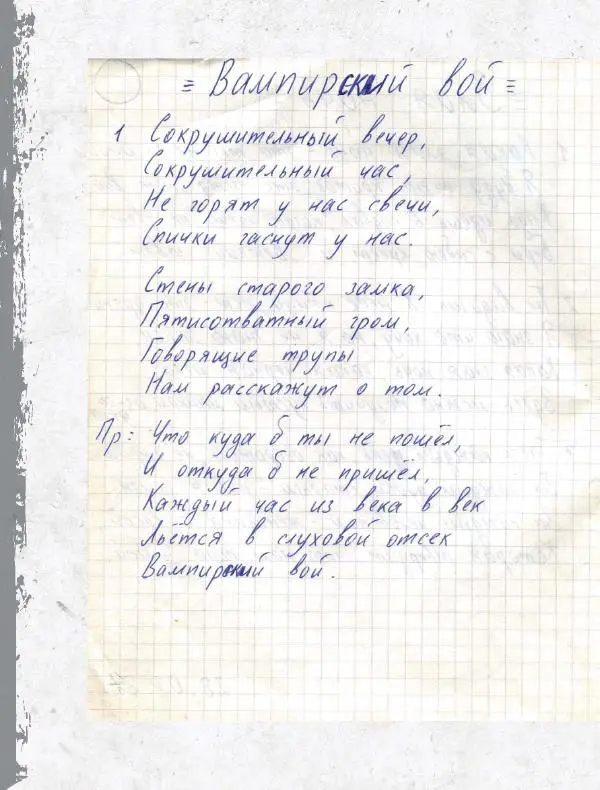 = Вампирский вой =
1 Сокрушительный вечер,
Сокрушительный час,
Не горят у нас свечи,
Спички гаснут у нас.
Стены старого замка,
Пятисотватный гром,
Говорящие трупы
Нам расскажут о том.
Пр: Что куда б ты не пошёл,
И откуда б не пришёл,
Каждый час из века в век
Льётся в слуховой отсек
Вампирский вой.